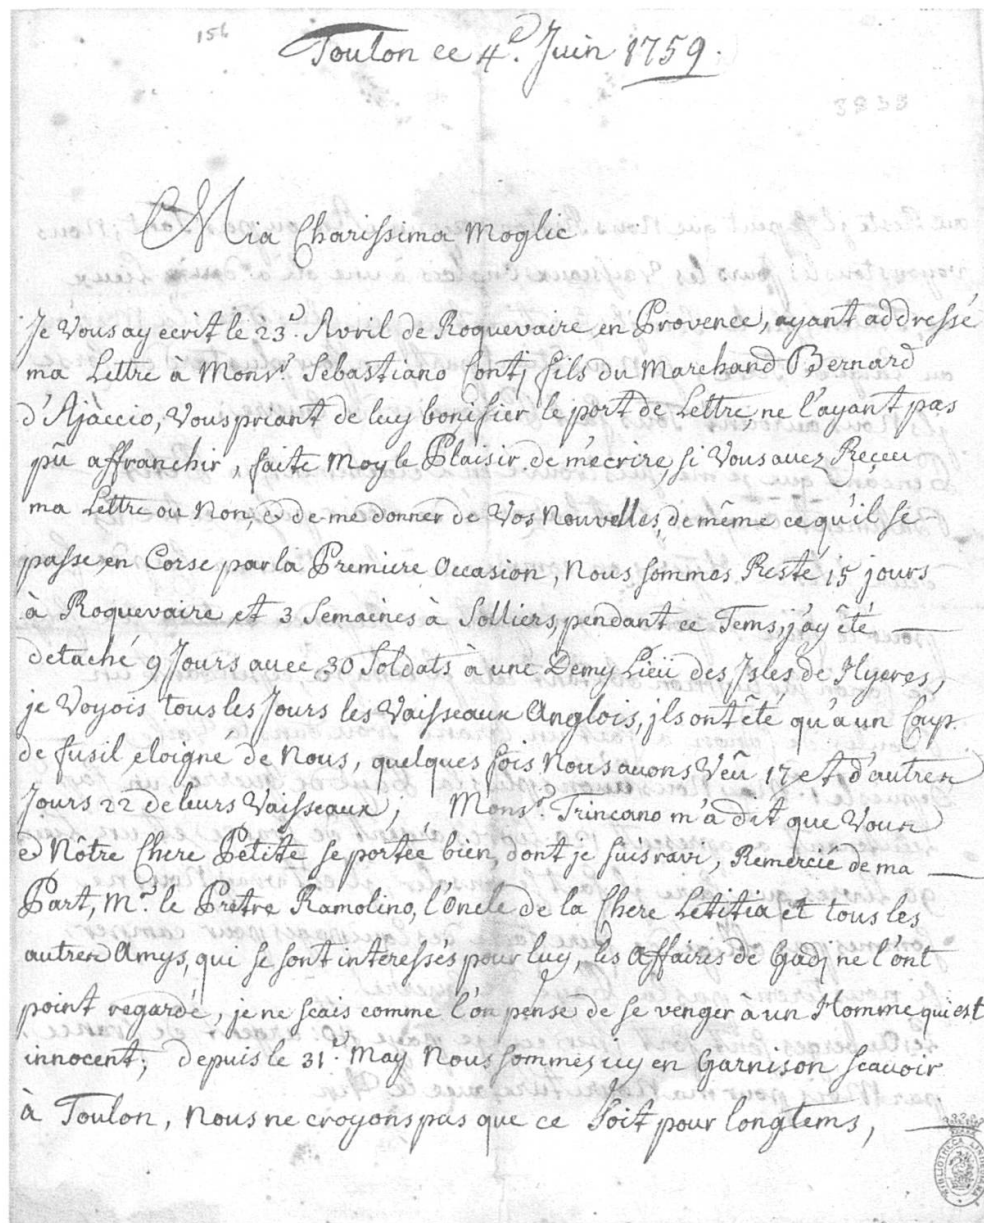 156
Toulon ce 4.e Juin 1759.
3835
Mia Charissima Moglie
Je Vous ay ecrit le 23.e Avril de Roquevaire en Provence, ayant addressé
ma Lettre à Monsr. Sebastiano Contj fils du Marchand Bernard
d'Ajaccio, Vous priant de luy bonifier le port de Lettre, ne l'ayant pas
pû affranchir, faite Moy le Plaisir de m'écrire si Vous avez Reçeu
ma Lettre ou Non, & de me donner de Vos Nouvelles, de même ce qu'il se
passe en Corse par la Premiere Occasion, Nous sommes Resté 15 jours
à Roquevaire et 3 Semaines à Solliers, pendant ce Tems, j'ay êté
detaché 9 Jours avec 30 Soldats à une Demy Lieü des Jsles de Hyeres,
je Voyois tous les Jours les Vaisseaux Anglois, jls ont êté qu'a un Coup
de fusil eloigne de Nous, quelques fois Nous avons Veû 17 et d'autres
Jours 22 de leurs Vaisseaux; Monsr. Trincano m'a dit que Vous
& Nôtre Chere Petite se portée bien, dont je suis ravi, Remercie de ma
Part, Mr. le Prêtre Ramolino, l'Oncle de la Chere Letitia et tous les
autres Amys, qui se sont intéressés pour luy, les Affaires de Gadj ne l'ont
point regardé, je ne scais comme l'on pense de se venger a un Homme qui est
innocent; depuis le 31.e May Nous sommes icy en Garnison scavoir
à Toulon, Nous ne croyons pas que ce soit pour longtems,
BIBLIOTHECA LINDESIANA